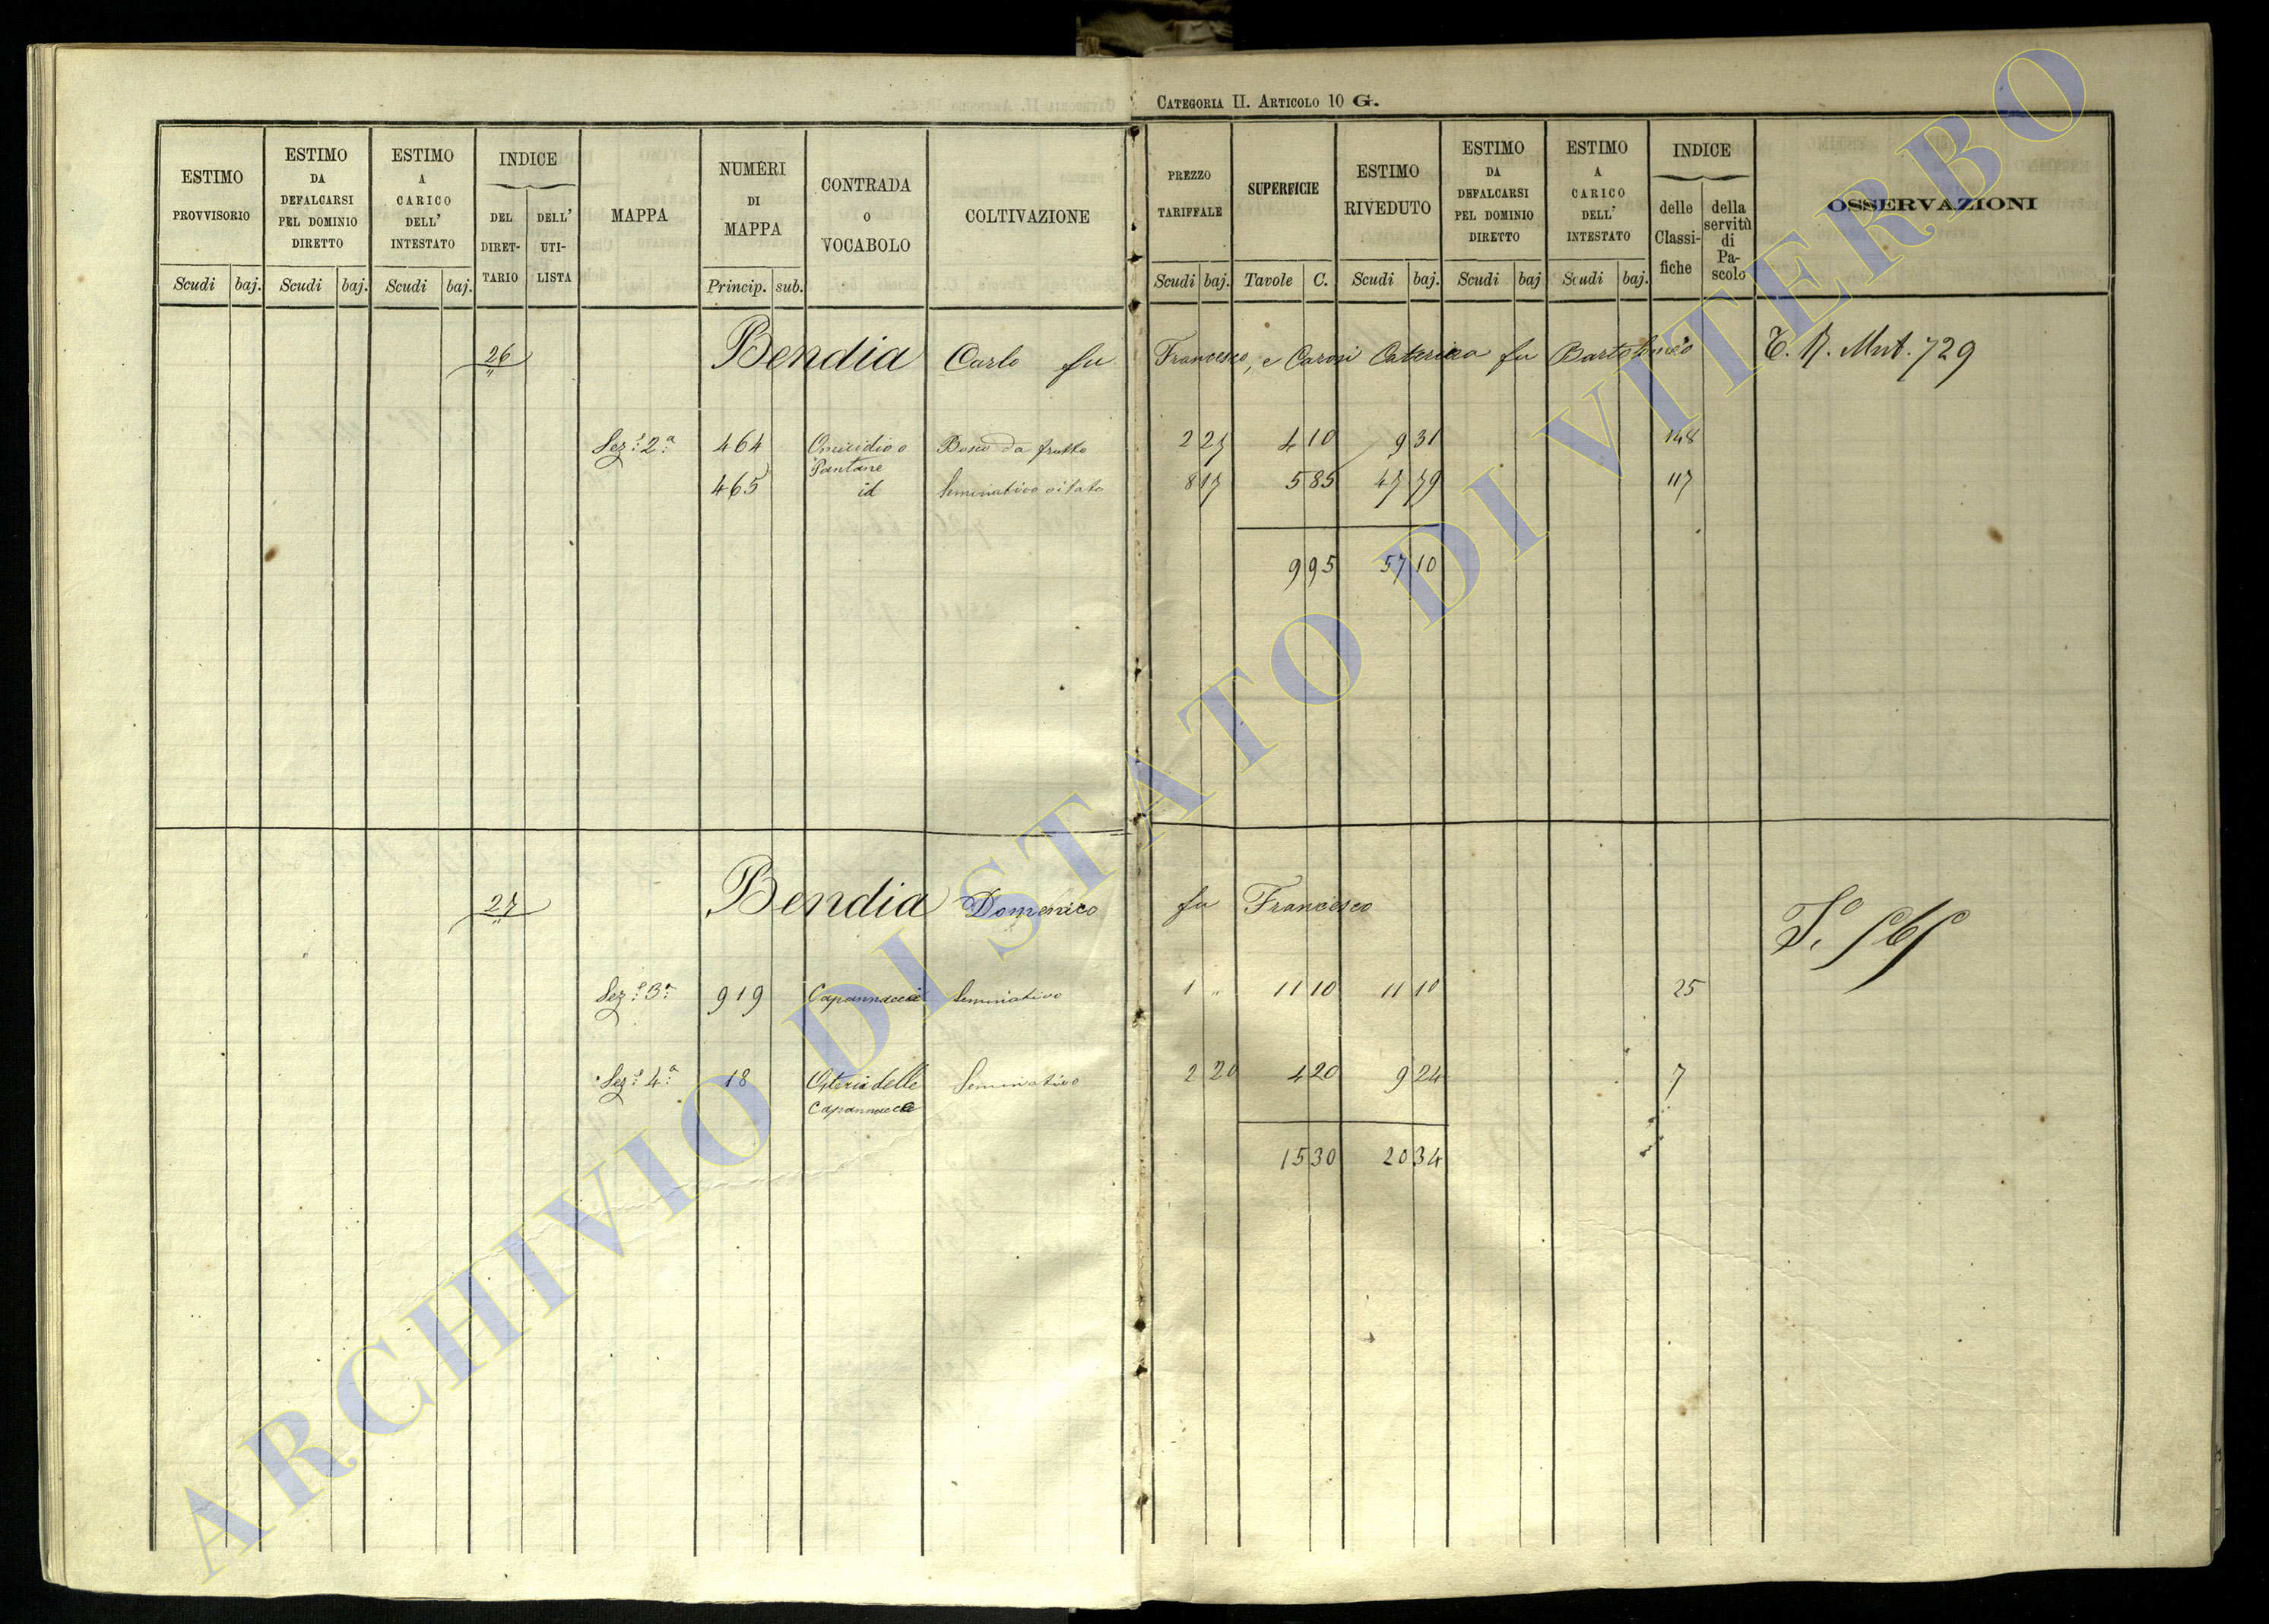 CATEGORIA II. ARTICOLO 10 G.
ESTIMO PROVVISORIO | ESTIMO DA DEFALCARSI PEL DOMINIO DIRETTO | ESTIMO A CARICO DELL' INTESTATO | INDICE DEL DIRET-TARIO | DELL' UTI-LISTA | MAPPA | NUMERI DI MAPPA | CONTRADA O VOCABOLO | COLTIVAZIONE | PREZZO TARIFFALE | SUPERFICIE | ESTIMO RIVEDUTO | ESTIMO DA DEFALCARSI PEL DOMINIO DIRETTO | ESTIMO A CARICO DELL' INTESTATO | INDICE delle Classi-fiche | della servitù di Pa-scolo | OSSERVAZIONI
Scudi baj. Scudi baj. Scudi baj. Princip. sub. Scudi baj. Tavole C. Scudi baj. Scudi baj Scudi baj.
26 Bendia Carlo fu Francesco, e Carosi Caterina fu Bartolomeo Mut. 729
Sez.e 2.a 464 Omicidio o Bosco da frutto 2 27 4 10 9 31 148
Pantane
465 id Seminativo vitato 8 17 5 85 47 79 117
9 95 57 10
27 Bendia Domenico fu Francesco
Sez.e 3.a 919 Capannacce Seminativo 1 " 11 10 11 10 25
Sez.e 4.a 18 Osteria delle Seminativo 2 20 4 20 9 24 7
Capannacce
15 30 20 34
ARCHIVIO DI STATO DI VITERBO